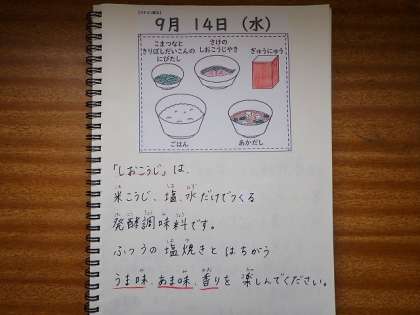 9月 14日（水）
こまつなと
きりぼしだいこんの
にびたし
さけの
しおこうじやき
ぎゅうにゅう
ごはん
あかだし
「しおこうじ」は、
米こうじ、塩、水だけでつくる
発酵調味料です。
ふつうの塩焼きとはちがう
うま味、あま味、香りを楽しんでください。